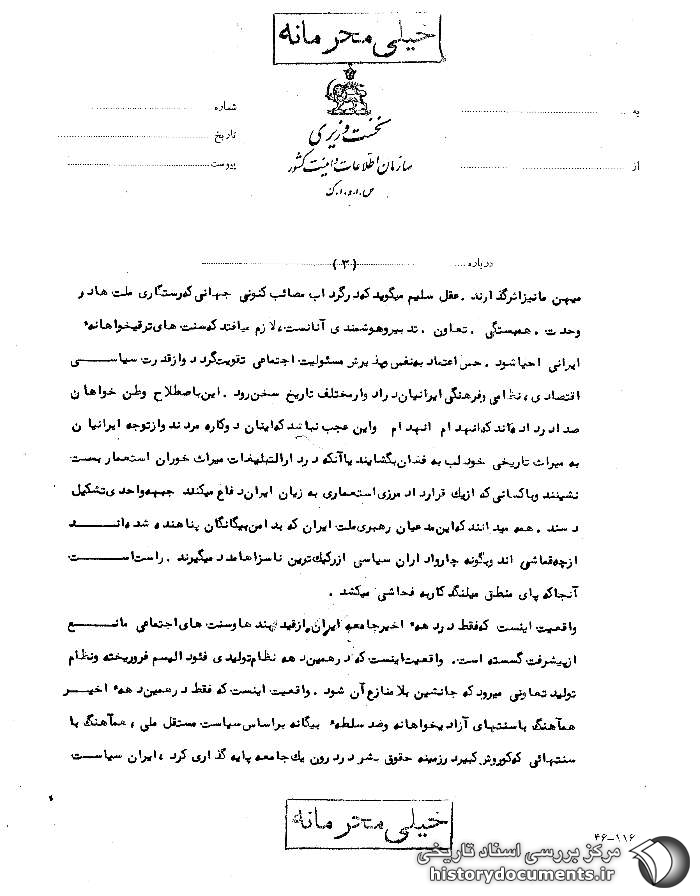 خیلی محرمانه
نخست وزیری
سازمان اطلاعات و امنیت کشور
س.ا.و.ا.ک
به
از
شماره
تاریخ
پیوست
درباره (۳)
میهن ما نیز اثر گذارند. عقل سلیم میگوید که در گرداب مصائب کنونی جهانی که رستگاری ملت ها در
وحدت، همبستگی، تعاون، تدبیر و هوشمندی آنانست، لازم میافتد که سنت های ترقیخواهانهٔ
ایرانی احیا شود. حس اعتماد بنفس و پذیرش مسئولیت اجتماعی تقویت گردد و از قدرت سیاسی
اقتصادی، نظامی و فرهنگی ایرانیان در ادوار مختلف تاریخ سخن رود. این باصطلاح وطن خواهان
صدا در داده اند که انهدام انهدام واین عجب نباشد که اینان دوکاره مردند و از توجه ایرانیان
به میراث تاریخی خود لب به فغان بگشایند یا آنکه در دارالتبلیغات میراث خوران استعمار بست
نشینند و با کسانی که از یک قرارداد مرزی استعماری به زیان ایران دفاع میکنند جبهه واحدی تشکیل
دهند. همه میدانند که این مدعیان رهبری ملت ایران که بدامن بیگانگان پناهنده شده اند
از چه قماشی اند و چگونه چارواداران سیاسی از رکیک ترین ناسزاها مدد میگیرند. راست است
آنجا که پای منطق میلنگد کار به فحاشی میکشد.
واقعیت اینست که فقط در دههٔ اخیر جامعه ایران از قید بندها و سنت های اجتماعی مانع
از پیشرفت گسسته است. واقعیت اینست که در همین دهه نظام تولیدی فئودالیسم فرو ریخته و نظام
تولید تعاونی میرود که جانشین بلامنازع آن شود. واقعیت اینست که فقط در همین دههٔ اخیر
همآهنگ با سنتهای آزادیخواهانه و ضد سلطهٔ بیگانه بر اساس سیاست مستقل ملی، همآهنگ با
سنتهائی که کوروش کبیر در زمینه حقوق بشر در درون یک جامعه پایه گذاری کرد، ایران سیاست
خیلی محرمانه
۴۶-۱۱۶
مرکز بررسی اسناد تاریخی
historydocuments.ir